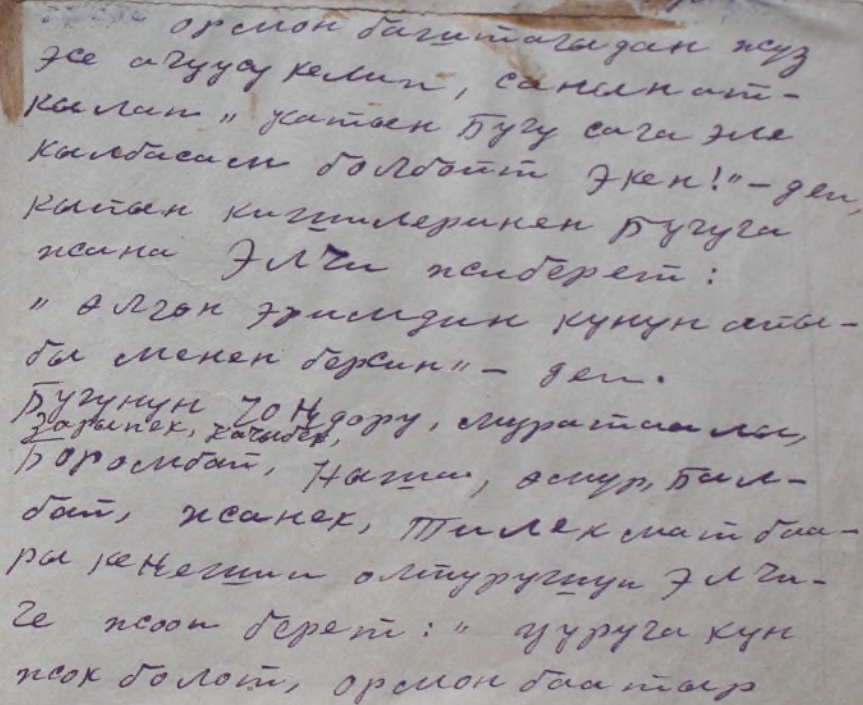 ормон багыштагыдан жүз
эсе ачуусу келип, санын ат-
кылап „ катын Бугу сага эле
кылбасам болбойт экен!" – деп,
кыпын кишилеринен Бугуга
жана Элчи жиберет:
„ өлгөн эримдин кунун айы-
бы менен берсин" – деп.
Бугунун чоңдору, муратаалы,
зарыпек, качыбек,
Боромбай, Наша, өмүр, Бал-
бай, жанек, Тилекмат баа-
ры кеңешип олтурушуп Элчи-
ге жооп берет: „ ууруга кун
жок болот, ормон баатыр